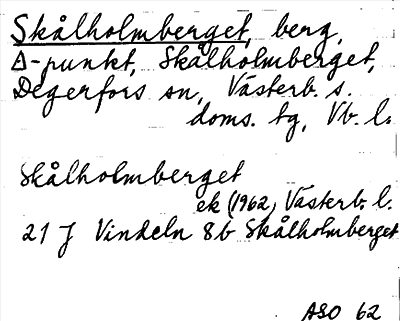 Skålholmberget, berg,
Δ-punkt, Skålholmberget,
Degerfors sn, Västerb. s.
doms. tg, Vb. l.
Skålholmberget
ek (1962) Västerb. l.
21 J Vindeln 8b Skålholmberget
ASO 62